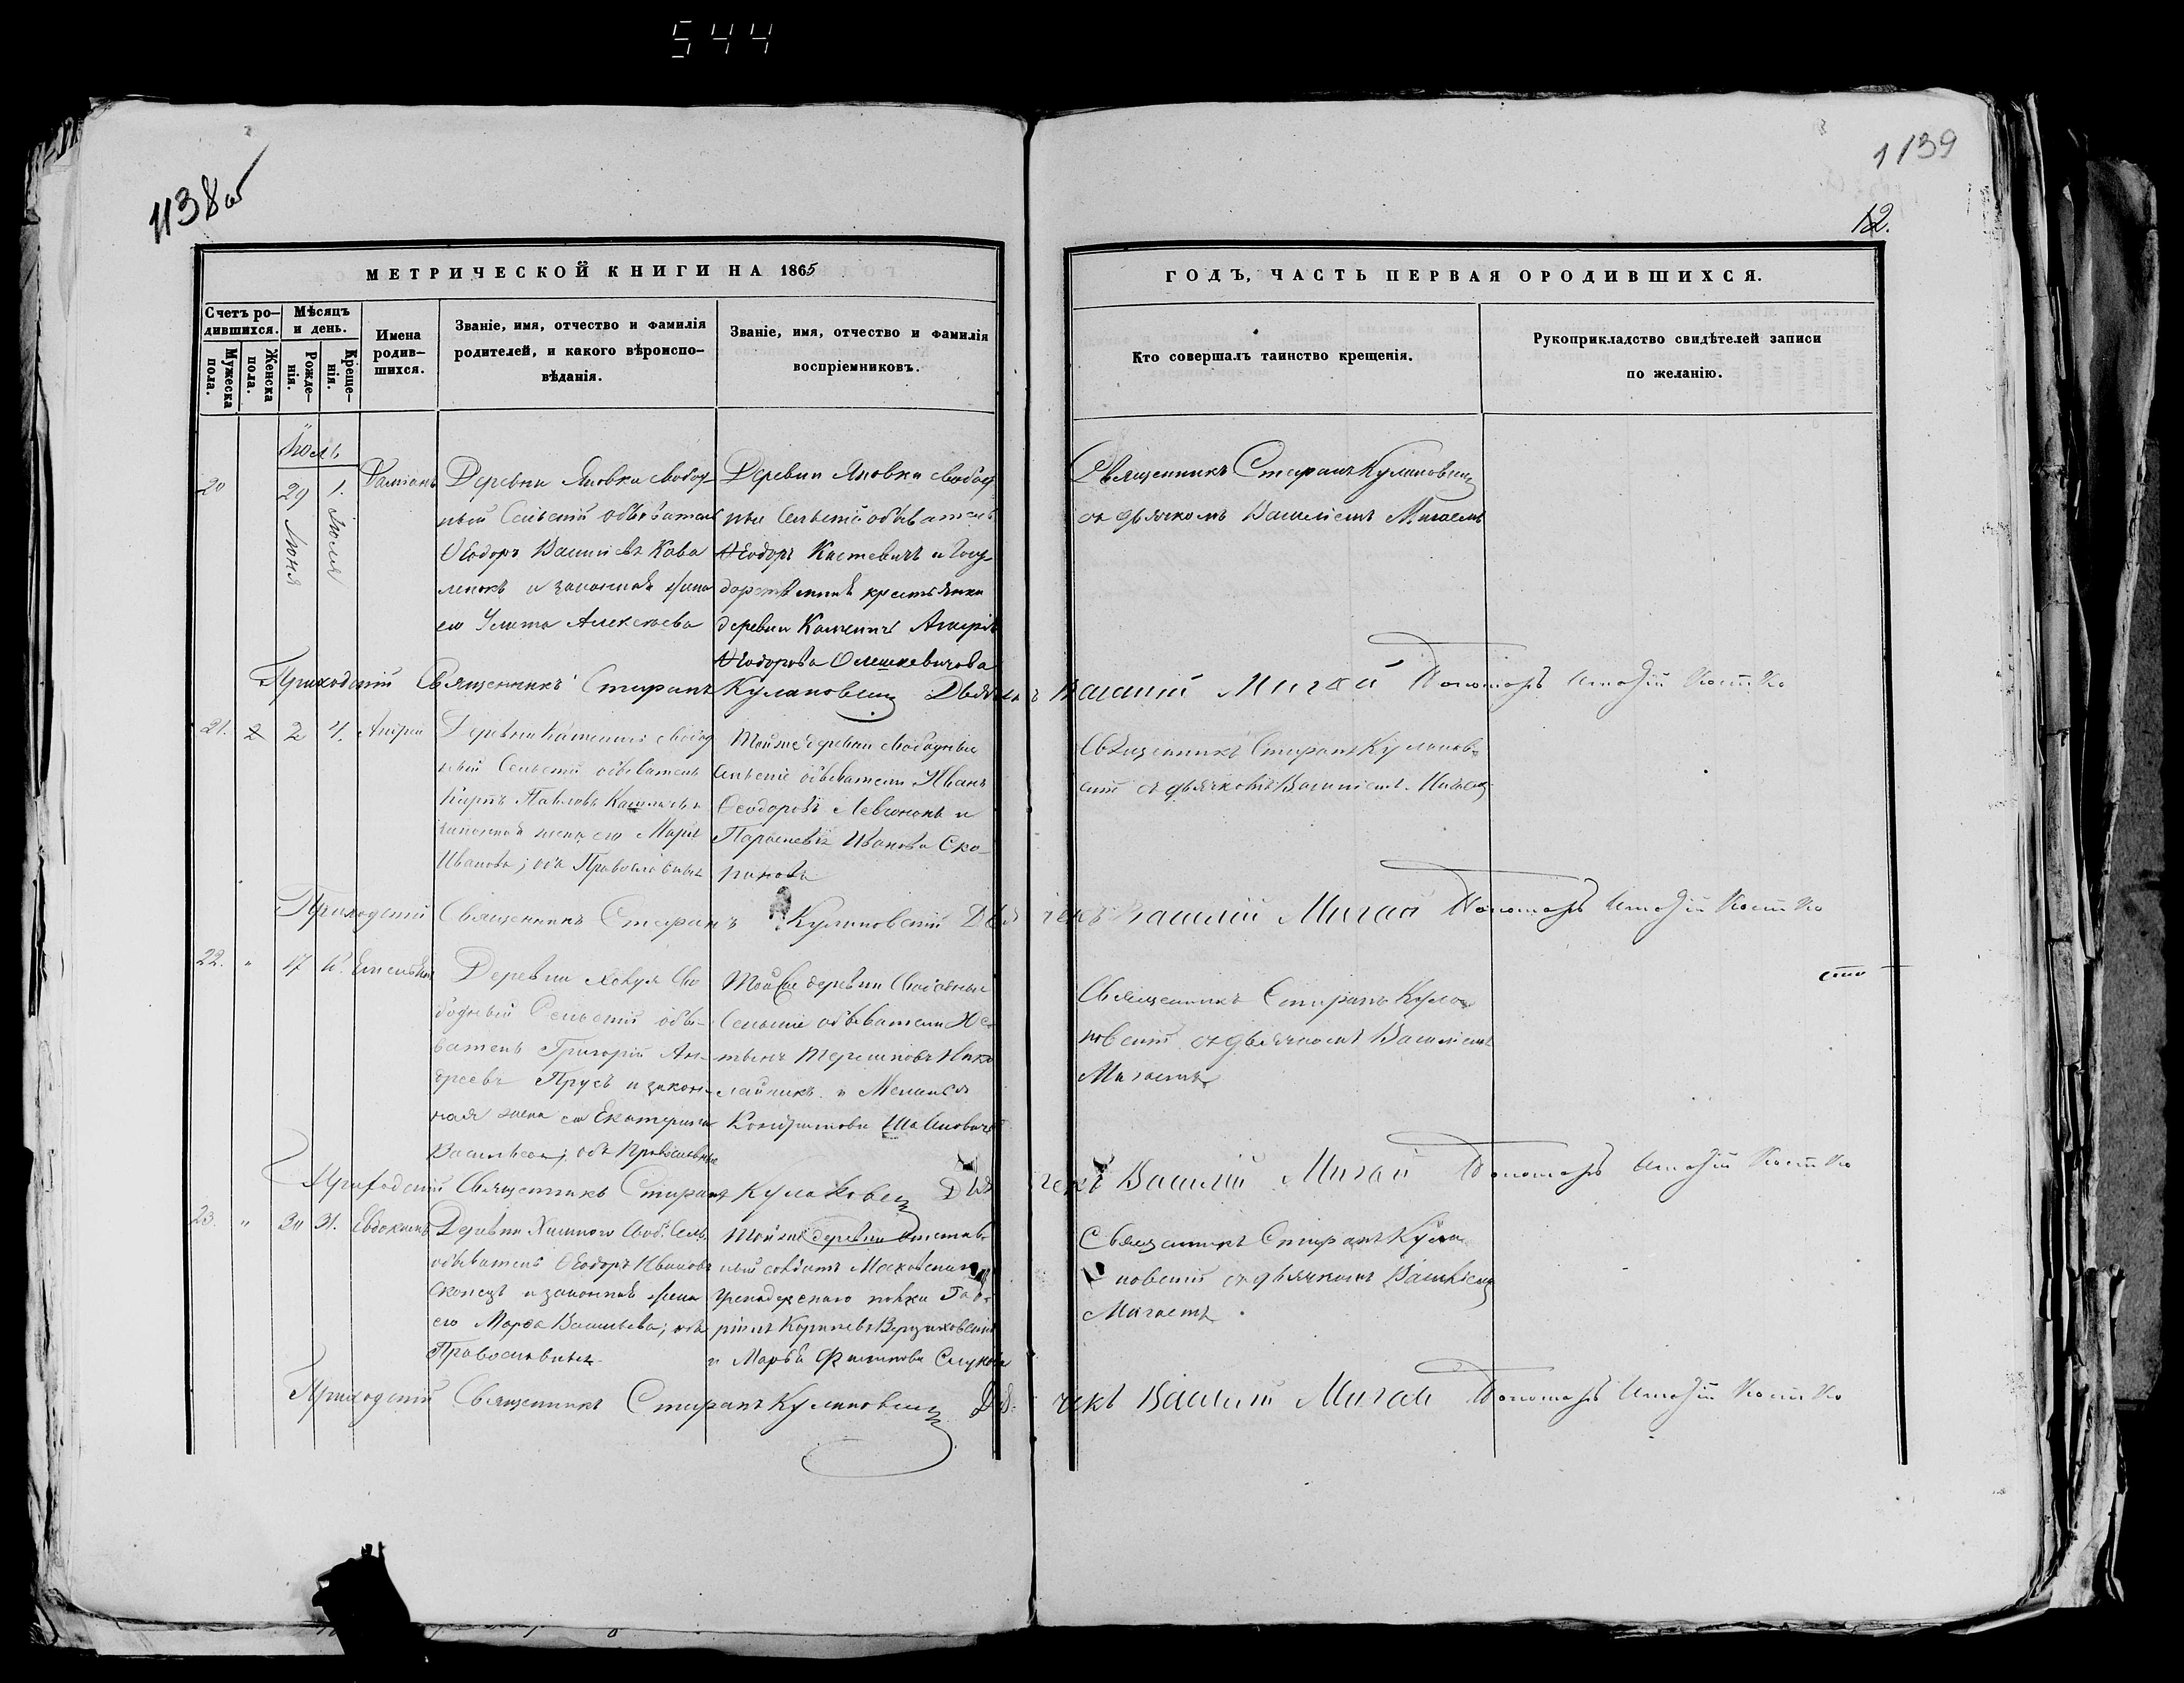 544
1138об
1139
12.
МЕТРИЧЕСКОЙ КНИГИ НА 1865
ГОДЪ, ЧАСТЬ ПЕРВАЯ ОРОДИВШИХСЯ.
Счетъ ро-
дившихся.
Мужеска
пола.
Женска
пола.
Мѣсяцъ
и день.
Рожде-
нія.
Креще-
нія.
Имена
родив-
шихся.
Званіе, имя, отчество и фамилія
родителей, и какого вѣроиспо-
вѣданія.
Званіе, имя, отчество и фамилія
воспріемниковъ.
Кто совершалъ таинство крещенія.
Рукоприкладство свидѣтелей записи
по желанію.
Іюль
20
29 Іюня
1. Іюля
Даміанъ
Деревни Яновки свобод-
ный Сельскій обыватель
Ѳеодоръ Васильевъ Кова
ленокъ и законная жена
его Улита Алексеева
Деревни Яновки свобод
ный Сельскій обыватель
Ѳеодоръ Костевичъ и Госу-
дарственная крестьянка
деревни Каменичъ
Ѳеодорова Олешкевичова
Священникъ Стефанъ Кулаковскій
съ дьячкомъ Василіемъ Мигаемъ
Приходскій Священникъ Стефанъ Кулаковскій Дьячекъ Василій Мигай Пономарь Костко
21.
2
2
4.
Андрей
Деревни Каменичъ свобод
ный Сельскій обыватель
Карпъ Павловъ и
законная жена его Марія
Иванова; оба Православные
Той же деревни свободные
Сельскіе обыватели Иванъ
Ѳеодоровъ Левчонокъ и
Параскевія Иванова Ско-
ринова
Священникъ Стефанъ Кулаков-
скій съ дьячкомъ Василіемъ Мигаемъ
Приходскій Священникъ Стефанъ Кулаковскій Дьячекъ Василій Мигай Пономарь Костко
22.
"
17
Емельянъ
Деревни Сво
бодный Сельскій обы-
ватель Григорій Ан-
дреевъ Прусъ и закон-
ная жена его Екатерина
Васильева; оба Православные
Той же деревни Свободные
Сельскіе обыватели
Терешковъ Нико
лайчикъ и Меланія
Кондратова
Священникъ Стефанъ Кула-
ковскій съ дьячкомъ Василіемъ
Мигаемъ
Приходскій Священникъ Стефанъ Кулаковскій Дьячекъ Василій Мигай Пономарь Костко
23.
"
30
31.
Евдокимъ
Деревни Своб. Сель.
обыватель Ѳеодоръ Ивановъ
Скопецъ и законная жена
его Марѳа Васильева; оба
Православные
Той же деревни отстав-
ной солдатъ Московскаго
Гренадерскаго полка Гав-
ріилъ Корнеевъ
и Марѳа Филипова
Священникъ Стефанъ Кула-
ковскій съ дьячкомъ Василіемъ
Мигаемъ
Приходскій Священникъ Стефанъ Кулаковскій Дьячекъ Василій Мигай Пономарь Костко